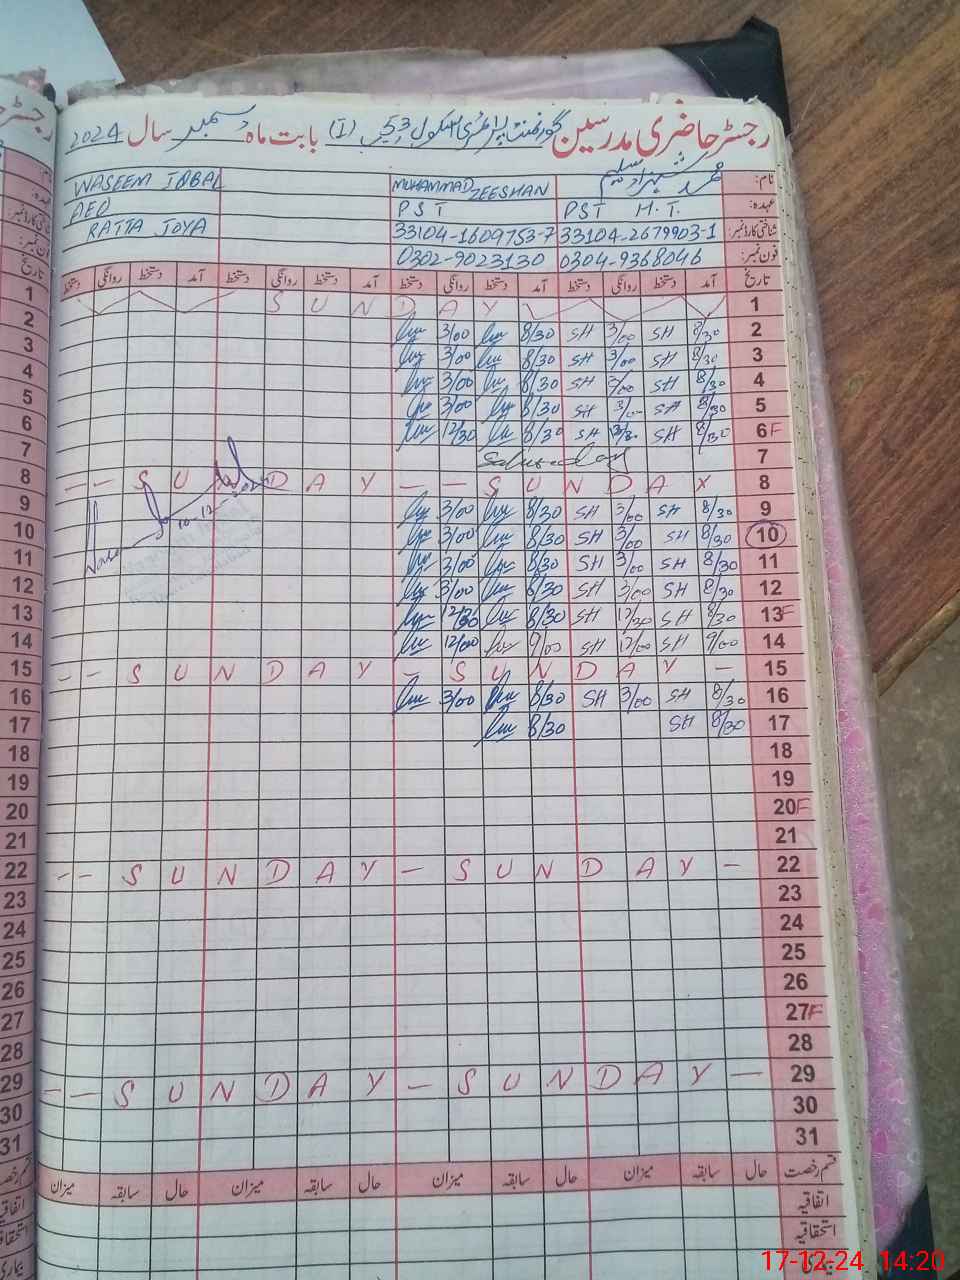 رجسٹر حاضری مدرسین گورنمنٹ پرائمری سکول 53 ج ب (I) بابت ماہ دسمبر سال 2024
نام: محمد شہزاد سلیم MUHAMMAD ZEESHAN WASEEM IQBAL
عہدہ: PST H.T. PST AEO
شناختی کارڈ نمبر: 33104-2679903-1 33104-1609753-7 RATTA JOYA
فون نمبر: 0304-9368046 0302-9023130
تاریخ آمد دستخط روانگی دستخط آمد دستخط روانگی دستخط آمد دستخط روانگی دستخط آمد دستخط روانگی دستخط
1 SUNDAY 1
2 3/00 8/30 SH 3/00 SH 8/30 2
3 3/00 8/30 SH 3/00 SH 8/30 3
4 3/00 8/30 SH 3/00 SH 8/30 4
5 3/00 8/30 SH 3/00 SH 8/30 5
6 12/30 8/30 SH SH 8/30 6F
7 Saturday 7
8 -- SUNDAY -- SUNDAY 8
9 3/00 8/30 SH 3/00 SH 8/30 9
10 3/00 8/30 SH 3/00 SH 8/30 10
11 3/00 8/30 SH 3/00 SH 8/30 11
12 3/00 8/30 SH 3/00 SH 8/30 12
13 12/30 8/30 SH 12/30 SH 8/30 13F
14 12/00 9/00 SH 12/00 SH 9/00 14
15 -- SUNDAY - SUNDAY - 15
16 3/00 8/30 SH 3/00 SH 8/30 16
17 8/30 SH 8/30 17
18 18
19 19
20 20F
21 21
22 -- SUNDAY - SUNDAY - 22
23 23
24 24
25 25
26 26
27 27F
28 28
29 -- SUNDAY - SUNDAY - 29
30 30
31 31
قسم رخصت حال سابقہ میزان حال سابقہ میزان حال سابقہ میزان حال سابقہ میزان
اتفاقیہ
استحقاقیہ
17-12-24 14:20